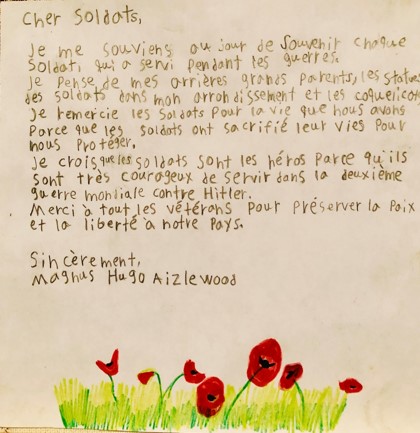 Cher Soldats,
Je me souviens au jour de Souvenir chaque
Soldat, qui a servi pendant les guerres.
Je pense de mes arrières grands parents, les statues
des soldats dans mon arrondissement et les coquelicots
Je remercie les soldats pour la vie que nous avons
parce que les soldats ont sacrifié leur vies pour
nous protéger.
Je crois que les soldats sont les héros parce qu'ils
sont très courageux de servir dans la deuxième
guerre mondiale contre Hitler.
Merci à tout les vétérans pour préserver la paix
et la liberté à notre pays.
Sincèrement,
Magnus Hugo Aizlewood